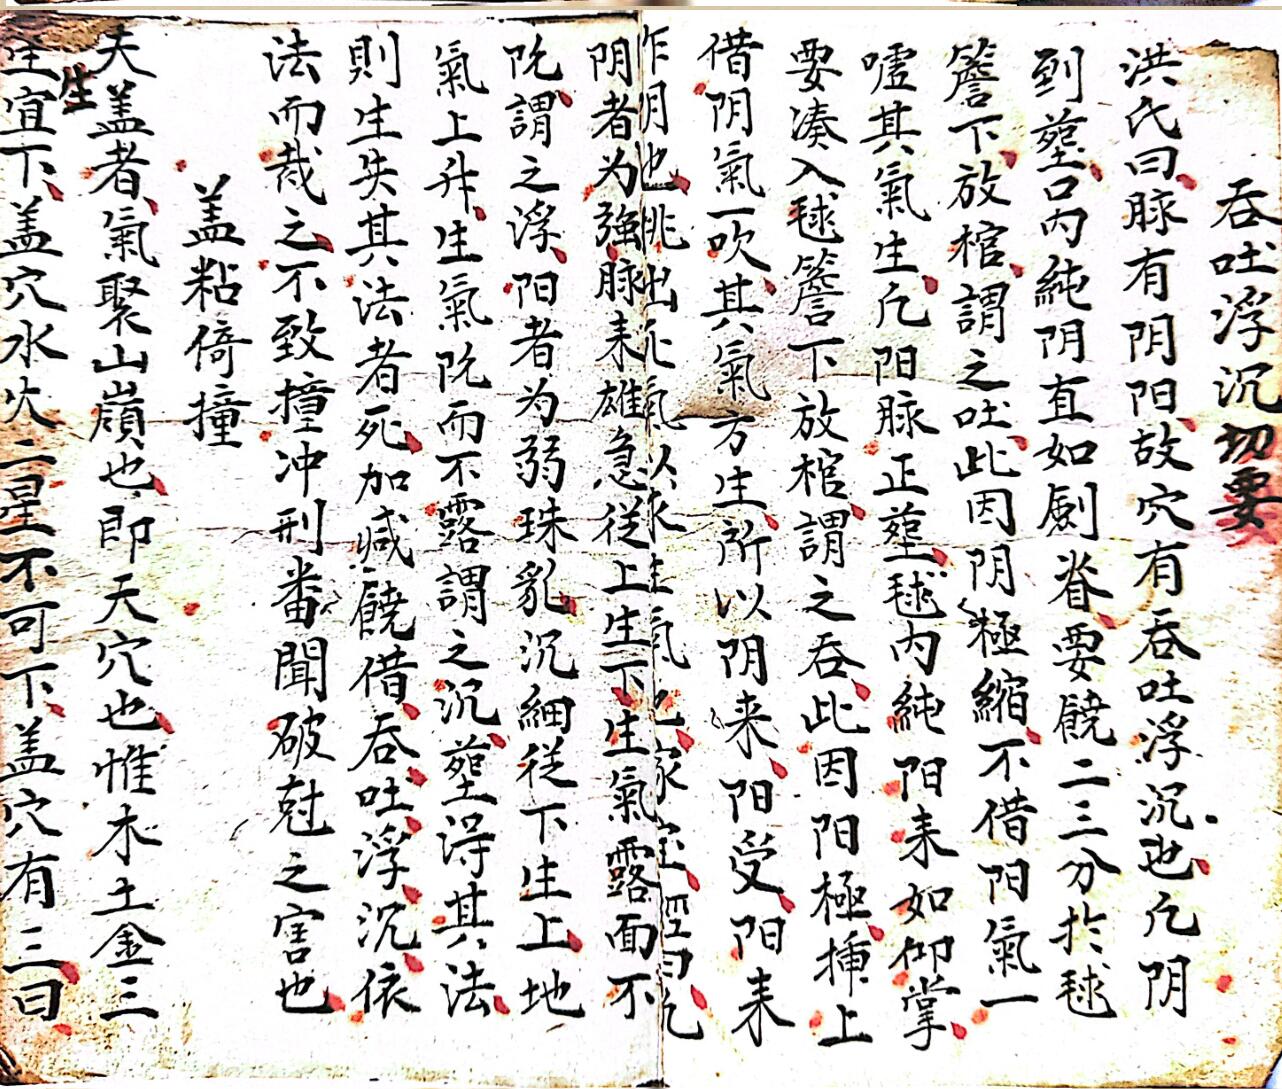 吞吐浮沉切要
洪氏曰脉有阴阳故穴有吞吐浮沉也凡阴
到塟口内純阴直如劍脊要饒二三分扵毬
簷下放棺謂之吐此因阴極縮不借阳氣一
嘘其氣生凡阳脉正塟毬内純阳耒如仰掌
要凑入毬簷下放棺謂之吞此因阳極挿上
借阴氣一吹其氣方生所以阴来阳受阳耒
阴者为強脉耒雄急従上生下生氣露面不
阬謂之浮阳者为弱珠乳沉細従下生上地
氣上升生氣阬而不露謂之沉塟得其法
則生失其法者死加减饒借吞吐浮沉依
法而裁之不致撞冲刑番闻破尅之害也
盖粘倚撞
夫盖者氣聚山嶺也即天穴也惟木土金三
生宜下盖穴水火二星不可下盖穴有三曰
生